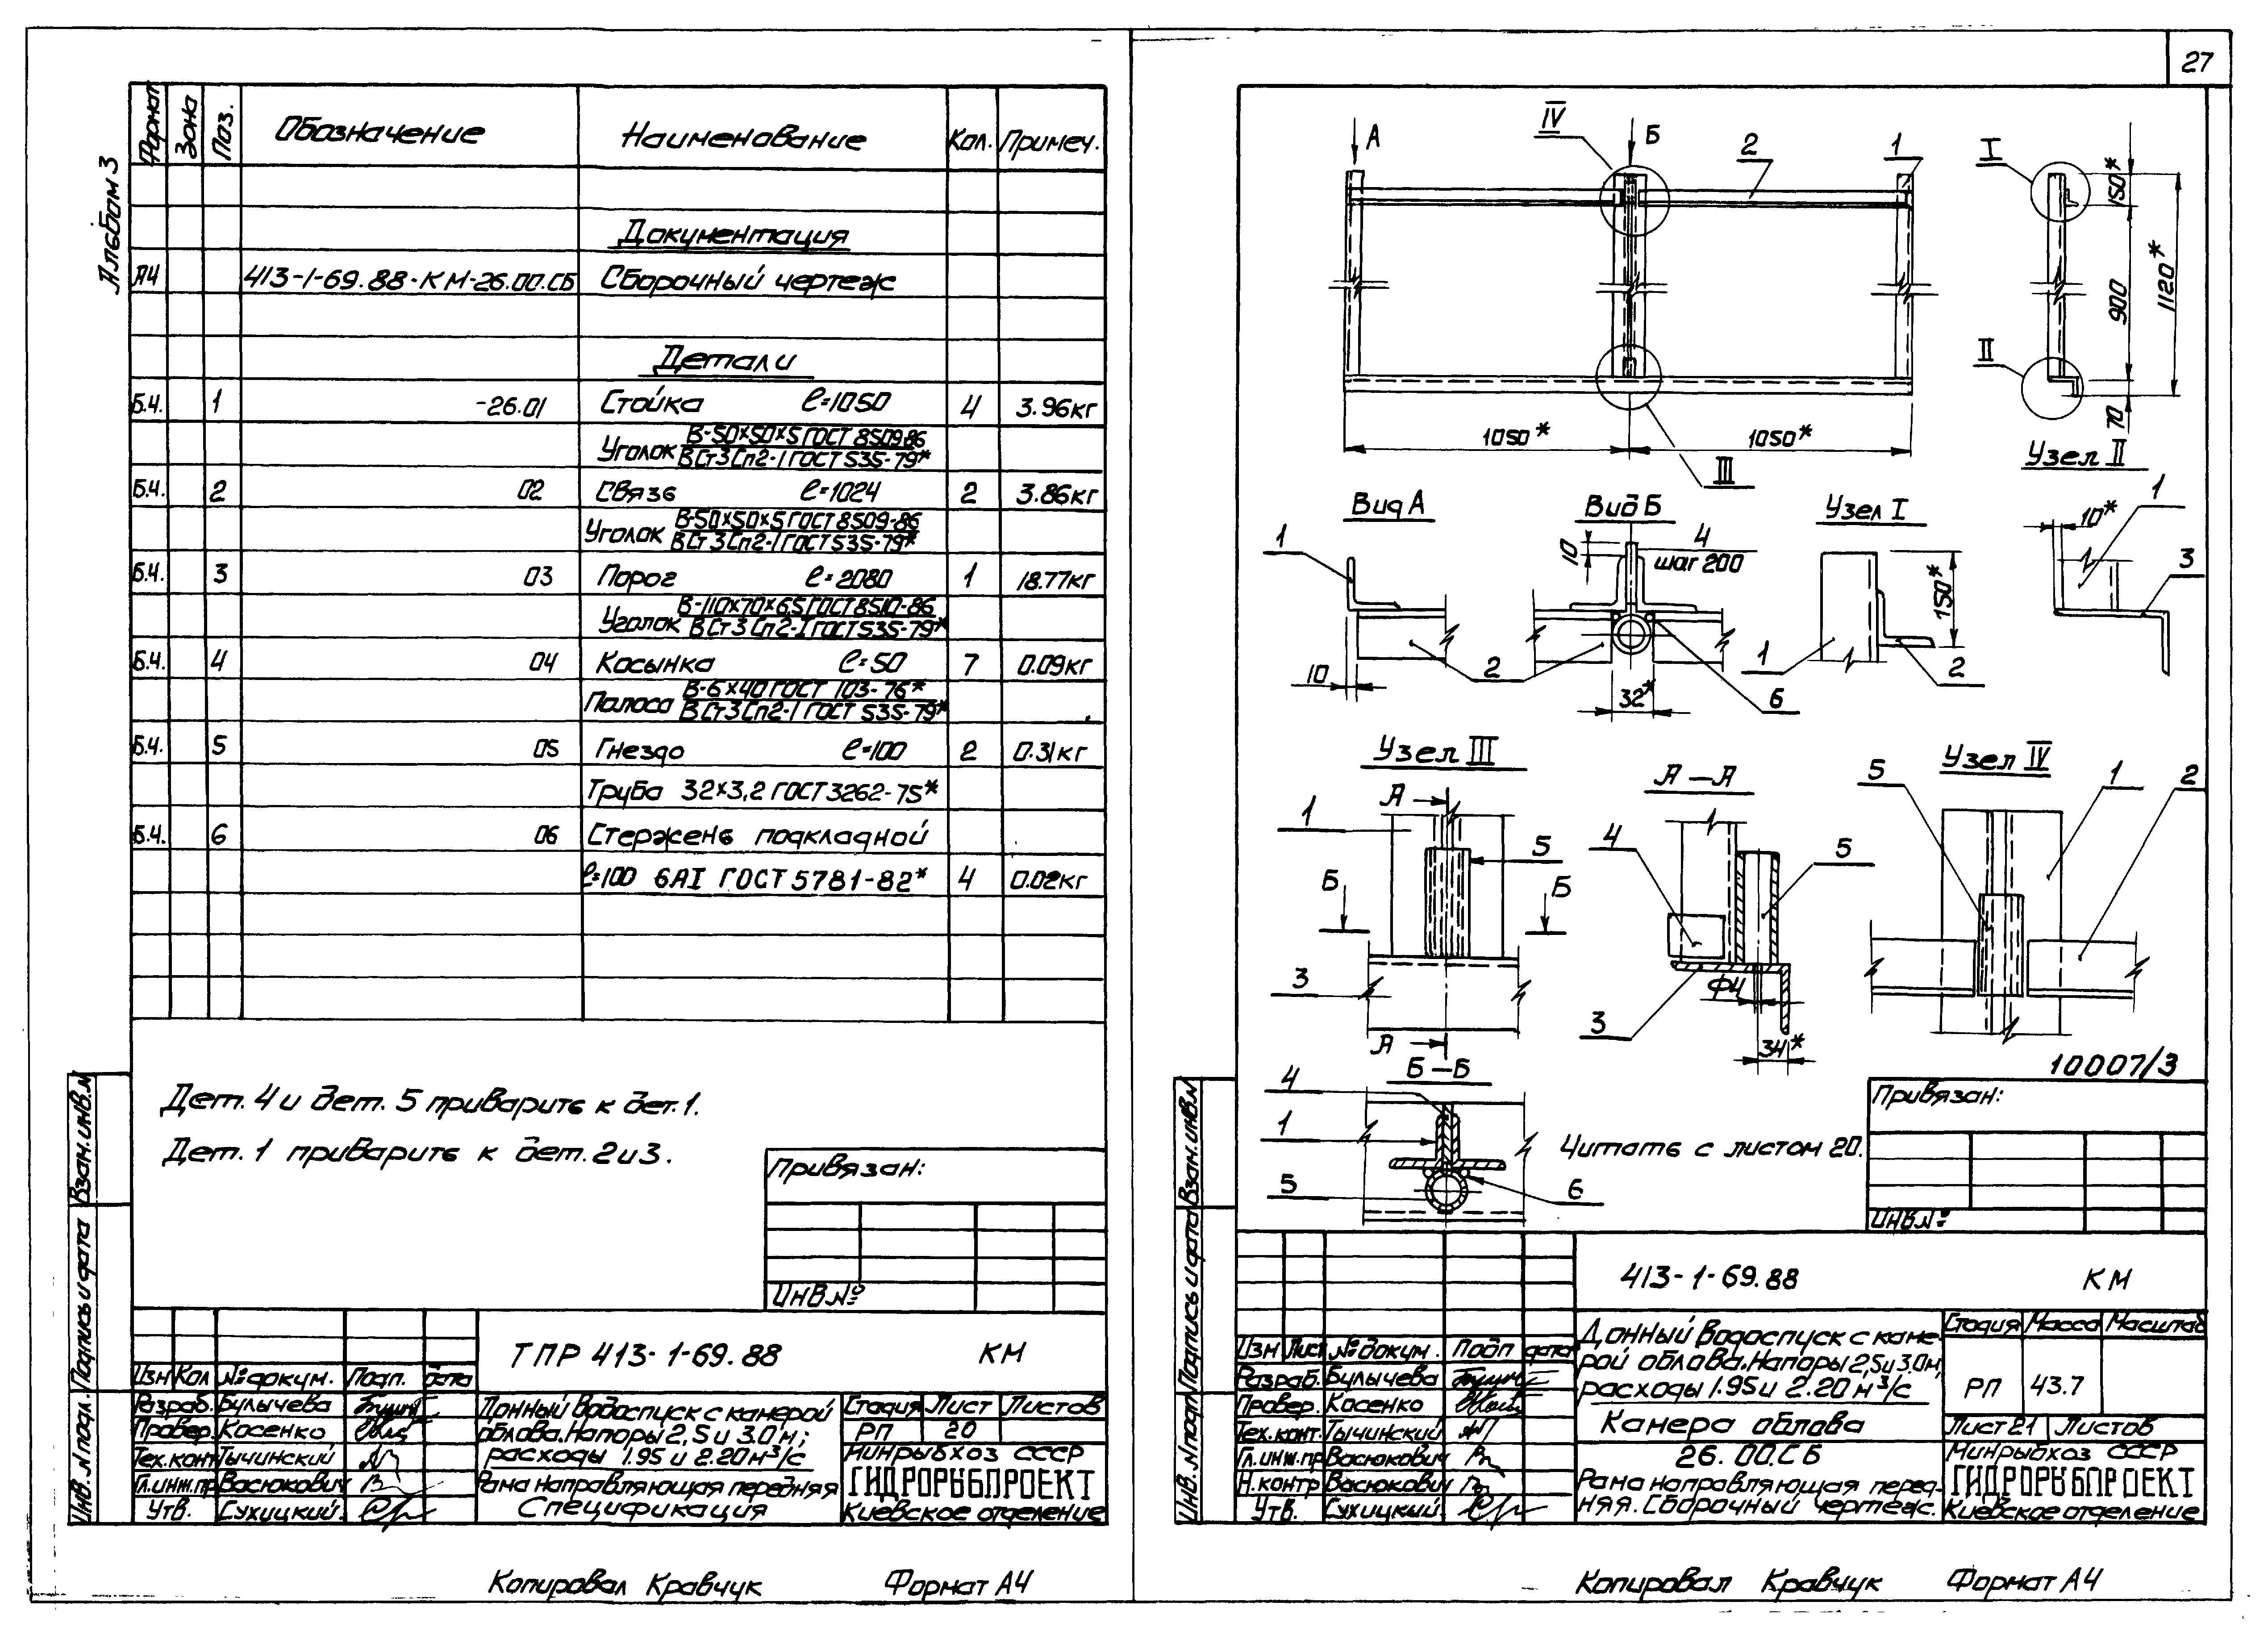 27
Альбом 3
Формат Зона Поз. Обозначение Наименование Кол. Примеч.
Документация
А4 413-1-69.88-КМ-26.00.СБ Сборочный чертеж
Детали
Б.Ч. 1 -26.01 Стойка ℓ=1050 4 3.96кг
Уголок В-50×50×5 ГОСТ 8509-86
ВСт3Сп2-I ГОСТ 535-79*
Б.Ч. 2 02 Связь ℓ=1024 2 3.86кг
Уголок В-50×50×5 ГОСТ 8509-86
ВСт3Сп2-I ГОСТ 535-79*
Б.Ч. 3 03 Порог ℓ=2080 1 18.77кг
Уголок В-110×70×65 ГОСТ 8510-86
ВСт3Сп2-I ГОСТ 535-79*
Б.Ч. 4 04 Косынка ℓ=50 7 0.09кг
Полоса В-6×40 ГОСТ 103-76*
ВСт3Сп2-I ГОСТ 535-79*
Б.Ч. 5 05 Гнездо ℓ=100 2 0.31кг
Труба 32×3,2 ГОСТ 3262-75*
Б.Ч. 6 06 Стержень подкладной
ℓ=100 6АI ГОСТ 5781-82* 4 0.02кг
Дет. 4 и дет. 5 приварить к дет. 1.
Дет. 1 приварить к дет. 2 и 3.
Привязан:
Инв.№
Взан. инв.№
Подпись и дата
Инв. № подл.
ТПР 413-1-69.88 КМ
Изм Кол № докум. Подп. дата
Разраб. Булычева
Провер. Косенко
Тех.конт Тычинский
Гл.инж.пр Васюкович
Утв. Сухицкий
Донный водоспуск с камерой
облова. Напоры 2,5 и 3.0м;
расходы 1.95 и 2.20м³/с
Рама направляющая передняя
Спецификация
Стадия Лист Листов
РП 20
Минрыбхоз СССР
ГИДРОРЫБПРОЕКТ
Киевское отделение
Копировал Кравчук Формат А4
А IV Б 2 1 I
150*
900
1120*
70
II
1050* 1050*
III
Узел II
Вид А Вид Б Узел I
1 10 4
шаг 200
150*
10* 1 3
10 2 32* 6 1 2
Узел III А-А Узел IV
А 1 5 Б Б 3 А
4 5 Ф4 3 34*
5 1 2
Б-Б
4 1 5 6
10007/3
Читать с листом 20.
Привязан:
Инв.№
Взан. инв.№
Подпись и дата
Инв. № подл.
413-1-69.88 КМ
Изм Лист № докум. Подп дата
Разраб. Булычева
Провер. Косенко
Тех.конт. Тычинский
Гл.инж.пр Васюкович
Н.контр Васюкович
Утв. Сухицкий
Донный водоспуск с каме-
рой облова. Напоры 2,5 и 3.0м;
расходы 1.95 и 2.20м³/с
Камера облова
26.00.СБ
Рама направляющая перед-
няя. Сборочный чертеж.
Стадия Масса Масштаб
РП 43.7
Лист 21 Листов
Минрыбхоз СССР
ГИДРОРЫБПРОЕКТ
Киевское отделение
Копировал Кравчук Формат А4